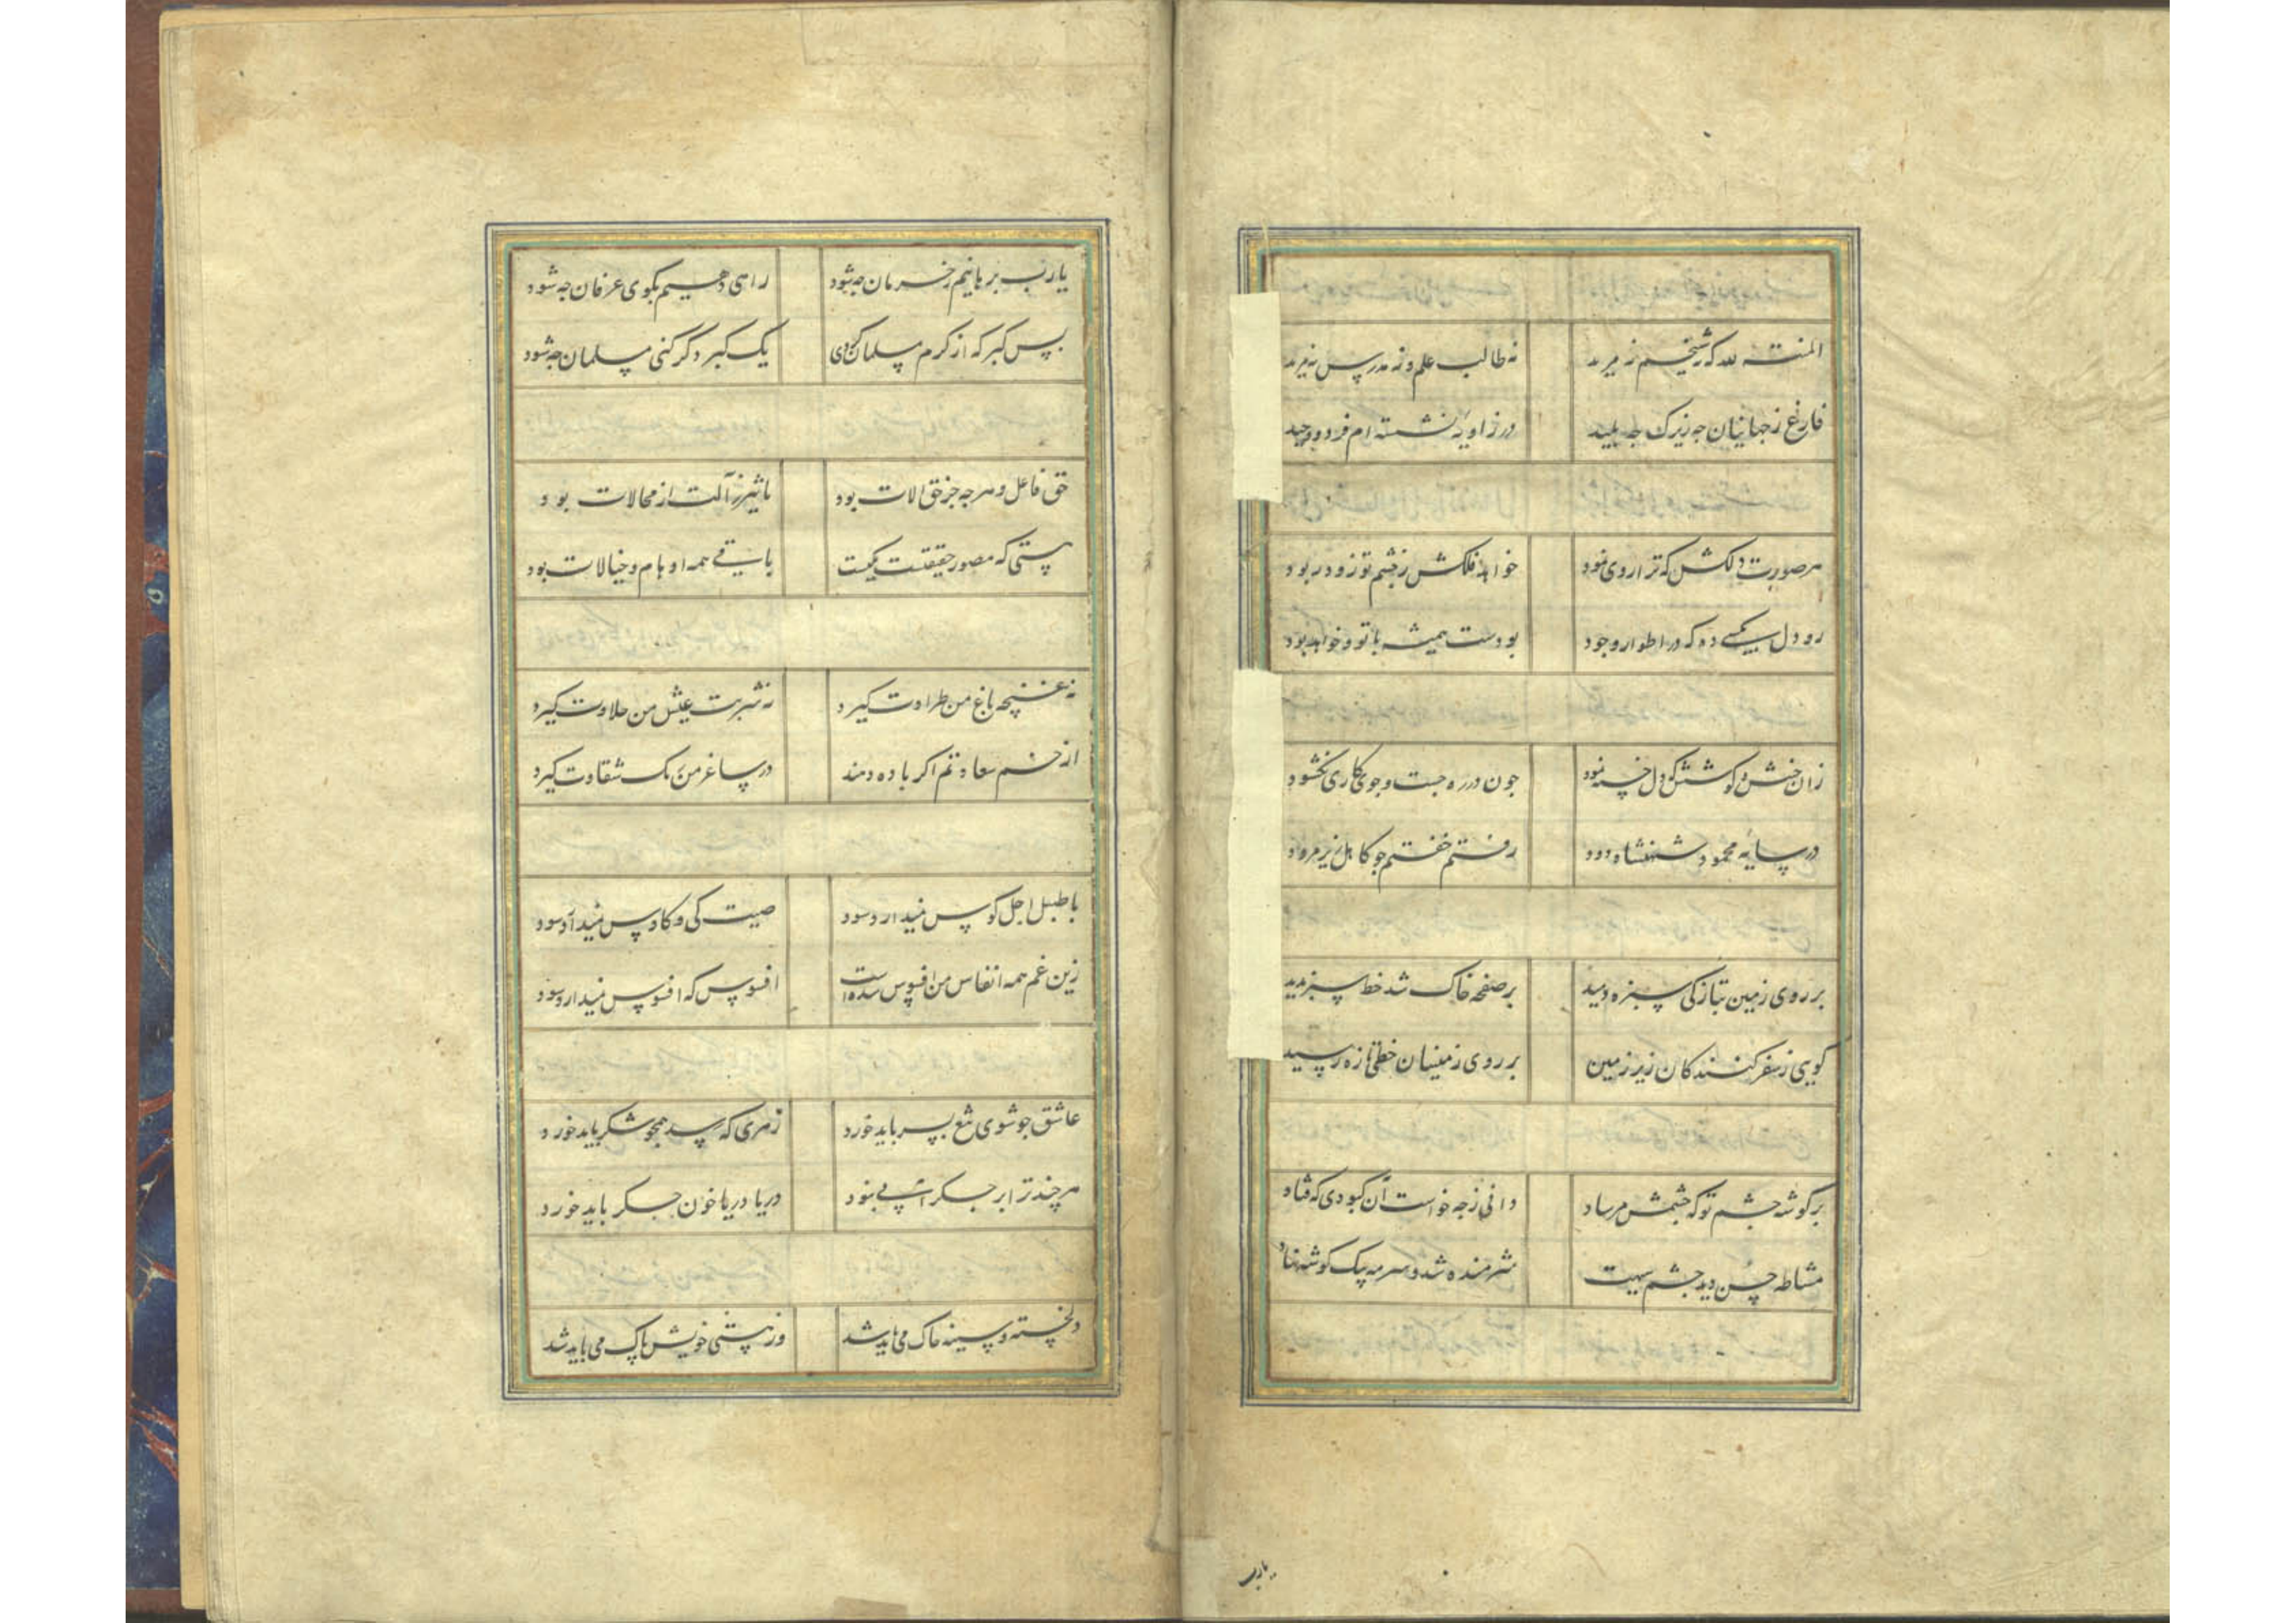 المنت لله که نه شیخم نه مرید نه طالب علم و نه مدرس نه مرید
فارغ ز جهانیان چه زیرک چه بلید در زاویه نشسته ام فرد و وحید
هر صورت دلکش که ترا روی نمود خواهد فلکش ز چشم تو زود ربود
رو دل بکسی ده که در اطوار وجود بودست همیشه با تو و خواهد بود
زان جنبش و کوشش که دل خسته نمود چون در ره جست و جوی کاری نکشود
در سایه محمود شهنشاه ودود رفتم خفتم جو کاهل زیر مرود
بر روی زمین بتازکی سبزه دمید بر صفحه خاک شد خط سبز پدید
کویی ز سفر کنندکان زیر زمین بر روی زمینیان خطی تازه رسید
بر کوشه چشم تو که چشمش مرساد دانی ز چه خواست آن کبودی که فتاد
مشاطه حسن دید چشم سیهت شرمنده شد و سرمه بیک کوشه نهاد
یارب
یارب برهانیم ز حرمان چه شود راهی دهیم بکوی عرفان چه شود
بس کبر که از کرم مسلمان کردی یک کبر دکر کنی مسلمان چه شود
حق فاعل و هر چه جز حق الات بود تاثیر ز آلت از محالات بود
هستی که مصور حقیقت یکیست باقی همه اوهام و خیالات بود
نه غنچه باغ من طراوت کیرد نه شربت عیش من حلاوت کیرد
از خم سعادتم اکر باده دهند در ساغر من رنک شقاوت کیرد
با طبل اجل کوس نمیدارد سود صیت کی و کاوس نمیدارد سود
زین غم همه انفاس من افسوس شده است افسوس که افسوس نمیدارد سود
عاشق چو شوی تیغ بسر باید خورد زهری که رسد همچو شکر باید خورد
هر چند ترا بر جکر آبی نبود دریا دریا خون جکر باید خورد
دلخسته و سینه چاک می باید شد وز هستی خویش پاک می باید شد